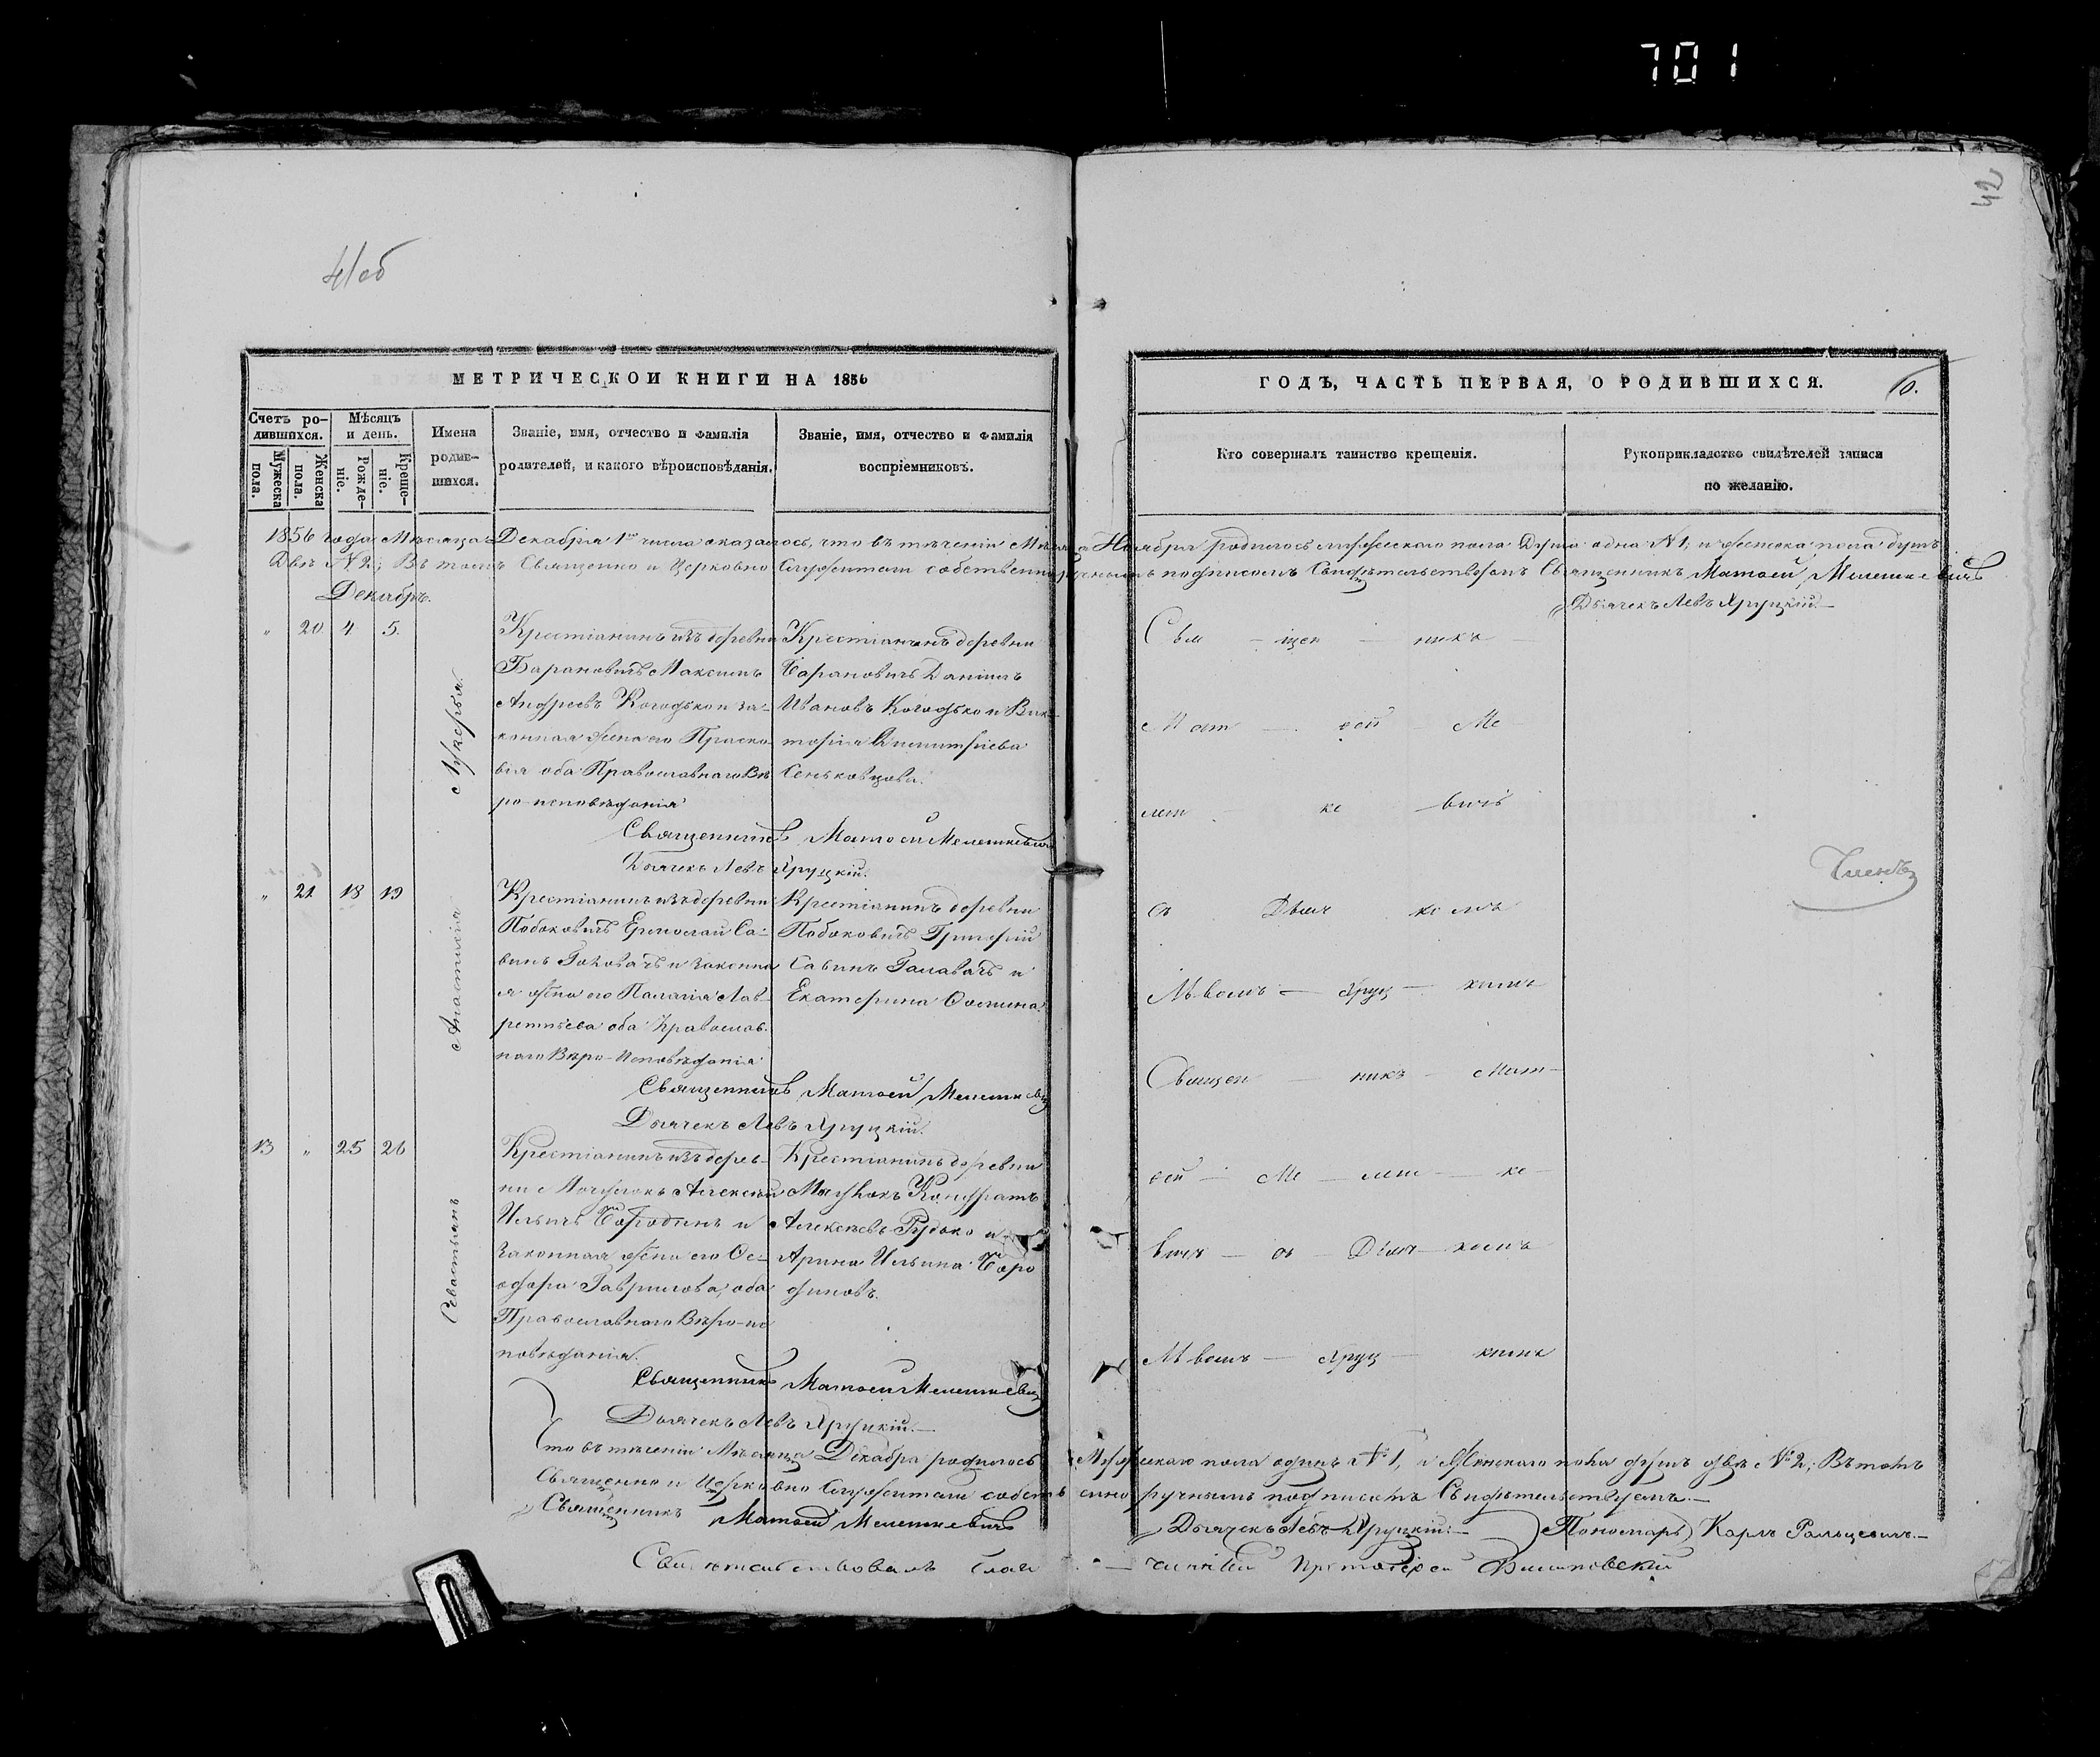 701
42
41об
МЕТРИЧЕСКОИ КНИГИ НА 1856
ГОДЪ, ЧАСТЬ ПЕРВАЯ, О РОДИВШИХСЯ.
10.
Счетъ ро-
дившихся.
Мужеска
пола.
Женска
пола.
Мѣсяцъ
и день.
Рожде-
ніе.
Креще-
ніе.
Имена
родив-
шихся.
Званіе, имя, отчество и фамилія
родителей, и какого вѣроисповѣданія.
Званіе, имя, отчество и фамилія
воспріемниковъ.
Кто совершалъ таинство крещенія.
Рукоприкладство свидѣтелей записи
по желанію.
1856 года Мѣсяца Декабря 1го числа оказалось, что въ теченіи Мѣсяца Ноября родилось мужескаго пола Душа одна №1, и женска пола душъ
Двѣ №2; Въ томъ Священно и Церковно Служители собственноручнымъ подписомъ Свидѣтельствуемъ Священникъ Матѳей Мелешкевичъ
Дьячекъ Левъ Хруцкій.—
Декабрь.
" 20 4 5.
Лукерья.
Крестіанинъ изъ деревни
Барановичъ Максимъ
Андреевъ Когодько и за-
конная жена его Праско-
вія оба Православнаго Вѣ
ро-исповѣданія
Крестіанинъ деревни
Барановичъ Даніилъ
Ивановъ Когодько и Вик-
торія Димитріева
Сеньковцова.
Священникъ Матѳей Мелешкевичъ
Дьячекъ Левъ Хруцкій.
Свя — щен — никъ —
Мат — ѳей — Ме
леш — ке — вичъ
съ Дьяч комъ
Львомъ — Хруц — кимъ
Членъ
" 21 18 19
Анастасія
Крестіанинъ изъ деревни
Побоковичъ Ермолай Са-
винъ Головачъ и законна
я жена его Палагія Лав-
рентьева оба Православ-
наго Вѣро-Исповѣданія
Крестіанинъ деревни
Побоковичъ Григорій
Савинъ Галавачъ и
Екатерина Осипина.
Священникъ Матѳей Мелешкевичъ
Дьячекъ Левъ Хруцкій.
Священ — никъ — Мат—
ѳей — Ме — леш — ке—
вичъ — съ — Дьяч — комъ
Львомъ — Хруц — кимъ
13 " 25 26
Севастьянъ
Крестіанинъ изъ дерев-
ни Алексѣй
Ильичъ Бородинъ и
Законная жена его Ѳе-
одора Гаврилова, оба
Православнаго Вѣро-ис
повѣданія.
Крестіанинъ деревни
Кондратъ
Алексѣевъ Рудько и
Арина Ильина Боро
диновъ.
Священникъ Матѳей Мелешкевичъ
Дьячекъ Левъ Хруцкій.—
Что въ теченіи Мѣсяца Декабря родилось Мужескаго пола одинъ №1, и Женскаго пола душъ двѣ №2; Въ томъ
Священно и Церковно Служители собственноручнымъ подписомъ Свидѣтельствуемъ.—
Священникъ Матѳей Мелешкевичъ Дьячекъ Левъ Хруцкій.— Пономарь Карлъ
Свидѣтельствовалъ Благо — чинный Протоіерей